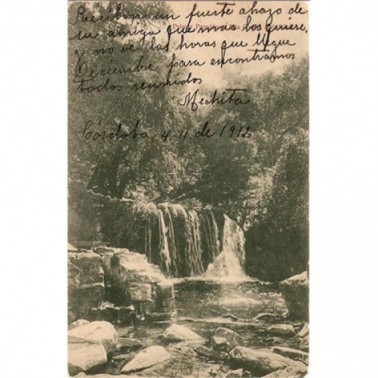 Recibirán un fuerte abrazo de
tu amiga que mas los quiere,
y no ve las horas que llegue
Diciembre, para encontrarnos
todos reunidos
Mechita
Córdoba 4 11 de 1912